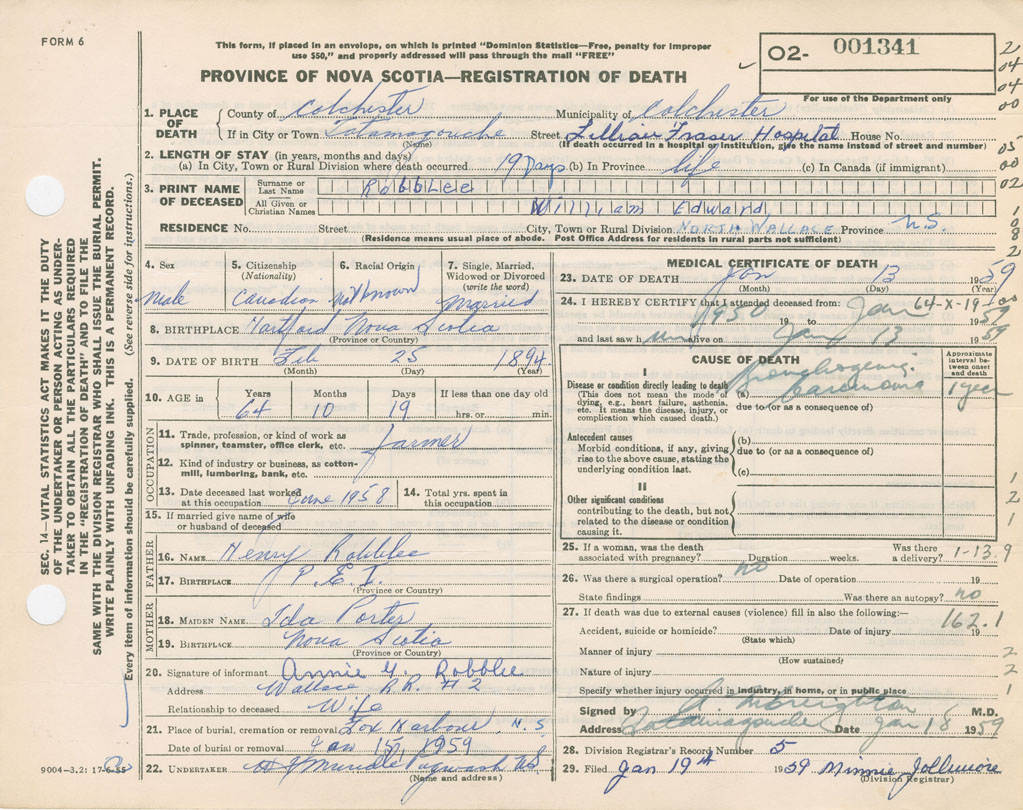 FORM 6
This form, if placed in an envelope, on which is printed "Dominion Statistics—Free, penalty for improper
use $50," and properly addressed will pass through the mail "FREE"
PROVINCE OF NOVA SCOTIA—REGISTRATION OF DEATH
02- 001341
For use of the Department only
2
04
04
00
05
00
02
1
0
8
2
SEC. 14—VITAL STATISTICS ACT MAKES IT THE DUTY
OF THE UNDERTAKER OR PERSON ACTING AS UNDER-
TAKER TO OBTAIN ALL THE PARTICULARS REQUIRED
IN THE "REGISTRATION OF DEATH" AND TO FILE THE
SAME WITH THE DIVISION REGISTRAR WHO SHALL ISSUE THE BURIAL PERMIT.
WRITE PLAINLY WITH UNFADING INK. THIS IS A PERMANENT RECORD.
Every item of information should be carefully supplied. (See reverse side for instructions.)
1. PLACE OF DEATH
County of Colchester Municipality of Colchester
If in City or Town Tatamagouche Street Lillian Fraser Hospital House No.
(Name) (If death occurred in a hospital or institution, give the name instead of street and number)
2. LENGTH OF STAY (in years, months and days)
(a) In City, Town or Rural Division where death occurred 19 Days (b) In Province life (c) In Canada (if immigrant)
3. PRINT NAME OF DECEASED
Surname or Last Name Robblee
All Given or Christian Names William Edward
RESIDENCE No. Street City, Town or Rural Division North Wallace Province N.S.
(Residence means usual place of abode. Post Office Address for residents in rural parts not sufficient)
4. Sex 5. Citizenship (Nationality) 6. Racial Origin 7. Single, Married, Widowed or Divorced (write the word)
Male Canadian not known Married
8. BIRTHPLACE Hartford Nova Scotia
(Province or Country)
9. DATE OF BIRTH Feb 25 1894
(Month) (Day) (Year)
10. AGE in Years Months Days If less than one day old
64 10 19 hrs. or min.
OCCUPATION
11. Trade, profession, or kind of work as
spinner, teamster, office clerk, etc. farmer
12. Kind of industry or business, as cotton-
mill, lumbering, bank, etc.
13. Date deceased last worked at this occupation June 1958 14. Total yrs. spent in this occupation
15. If married give name of wife
or husband of deceased
FATHER
16. NAME Henry Robblee
17. BIRTHPLACE P.E.I.
(Province or Country)
MOTHER
18. MAIDEN NAME Ida Porter
19. BIRTHPLACE Nova Scotia
(Province or Country)
20. Signature of informant Annie Y. Robblee
Address Wallace R.R. #2
Relationship to deceased Wife
21. Place of burial, cremation or removal Fox Harbour N.S.
Date of burial or removal Jan 15, 1959
22. UNDERTAKER Pugwash N.S.
(Name and address)
9004-3.2: 17-6-55
MEDICAL CERTIFICATE OF DEATH
23. DATE OF DEATH Jan 13 1959
(Month) (Day) (Year)
24. I HEREBY CERTIFY that I attended deceased from: Jan 64-X-19-00
1950 19 to 1959
and last saw him alive on Jan 13 1959
CAUSE OF DEATH
Approximate interval between onset and death
I
Disease or condition directly leading to death
(This does not mean the mode of
dying, e.g., heart failure, asthenia,
etc. It means the disease, injury, or
complication which caused death.)
(a) Bronchogenic carcinoma 1 year
due to (or as a consequence of)
Antecedent causes
Morbid conditions, if any, giving
rise to the above cause, stating the
underlying condition last.
(b)
due to (or as a consequence of)
(c)
II
Other significant conditions
contributing to the death, but not
related to the disease or condition
causing it.
1
2
1
25. If a woman, was the death associated with pregnancy? Duration weeks. Was there a delivery? 1-13.9
26. Was there a surgical operation? no Date of operation 19
State findings Was there an autopsy? no
27. If death was due to external causes (violence) fill in also the following:—
162.1
Accident, suicide or homicide? Date of injury 19
(State which)
Manner of injury 2
(How sustained)
Nature of injury 2
Specify whether injury occurred in industry, in home, or in public place 1
Signed by A Creighton M.D.
Address Tatamagouche Date Jan 18 1959
28. Division Registrar's Record Number 5
29. Filed Jan 19th 1959 Minnie Jollimore
(Division Registrar)